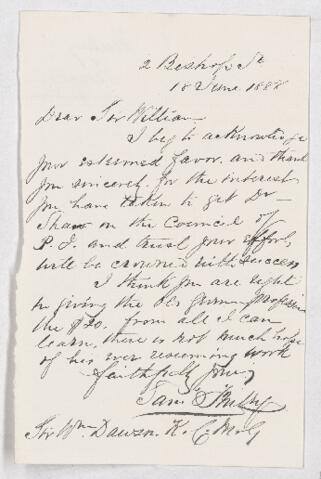 2 Bishop St
18 June 1888
Dear Sir William
I beg to acknowledge
your esteemed favor and thank
you sincerely for the interest
you have taken to get Dr
Shaw on the Council of
P. I. and trust your efforts
will be crowned with success
I think you are right
in giving the old German Professor
the $20. from all I can
learn, there is not much hope
of his ever resuming work
faithfully yours
Sir Wm Dawson K. C. M. G